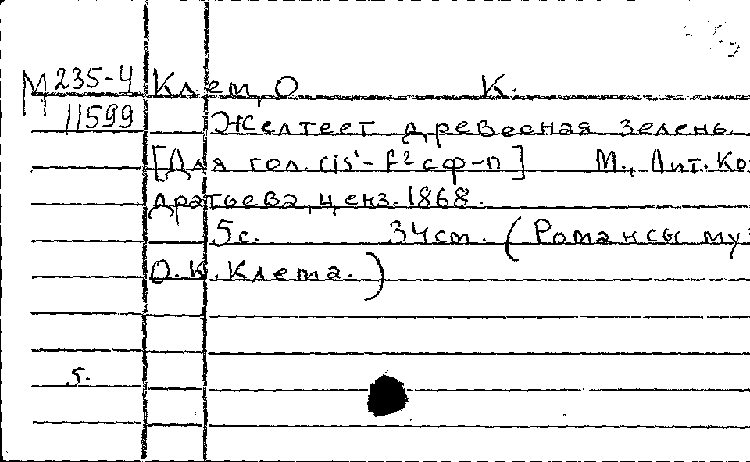 М 235-4 Клет, О К.
11599 Желтеет древесная зелень
[Для гол. cis'-f² с ф-п] М., Лит. Ко
дратьева, ценз. 1868.
5с. 34см. (Романсы муз
О.К. Клета.)
5.